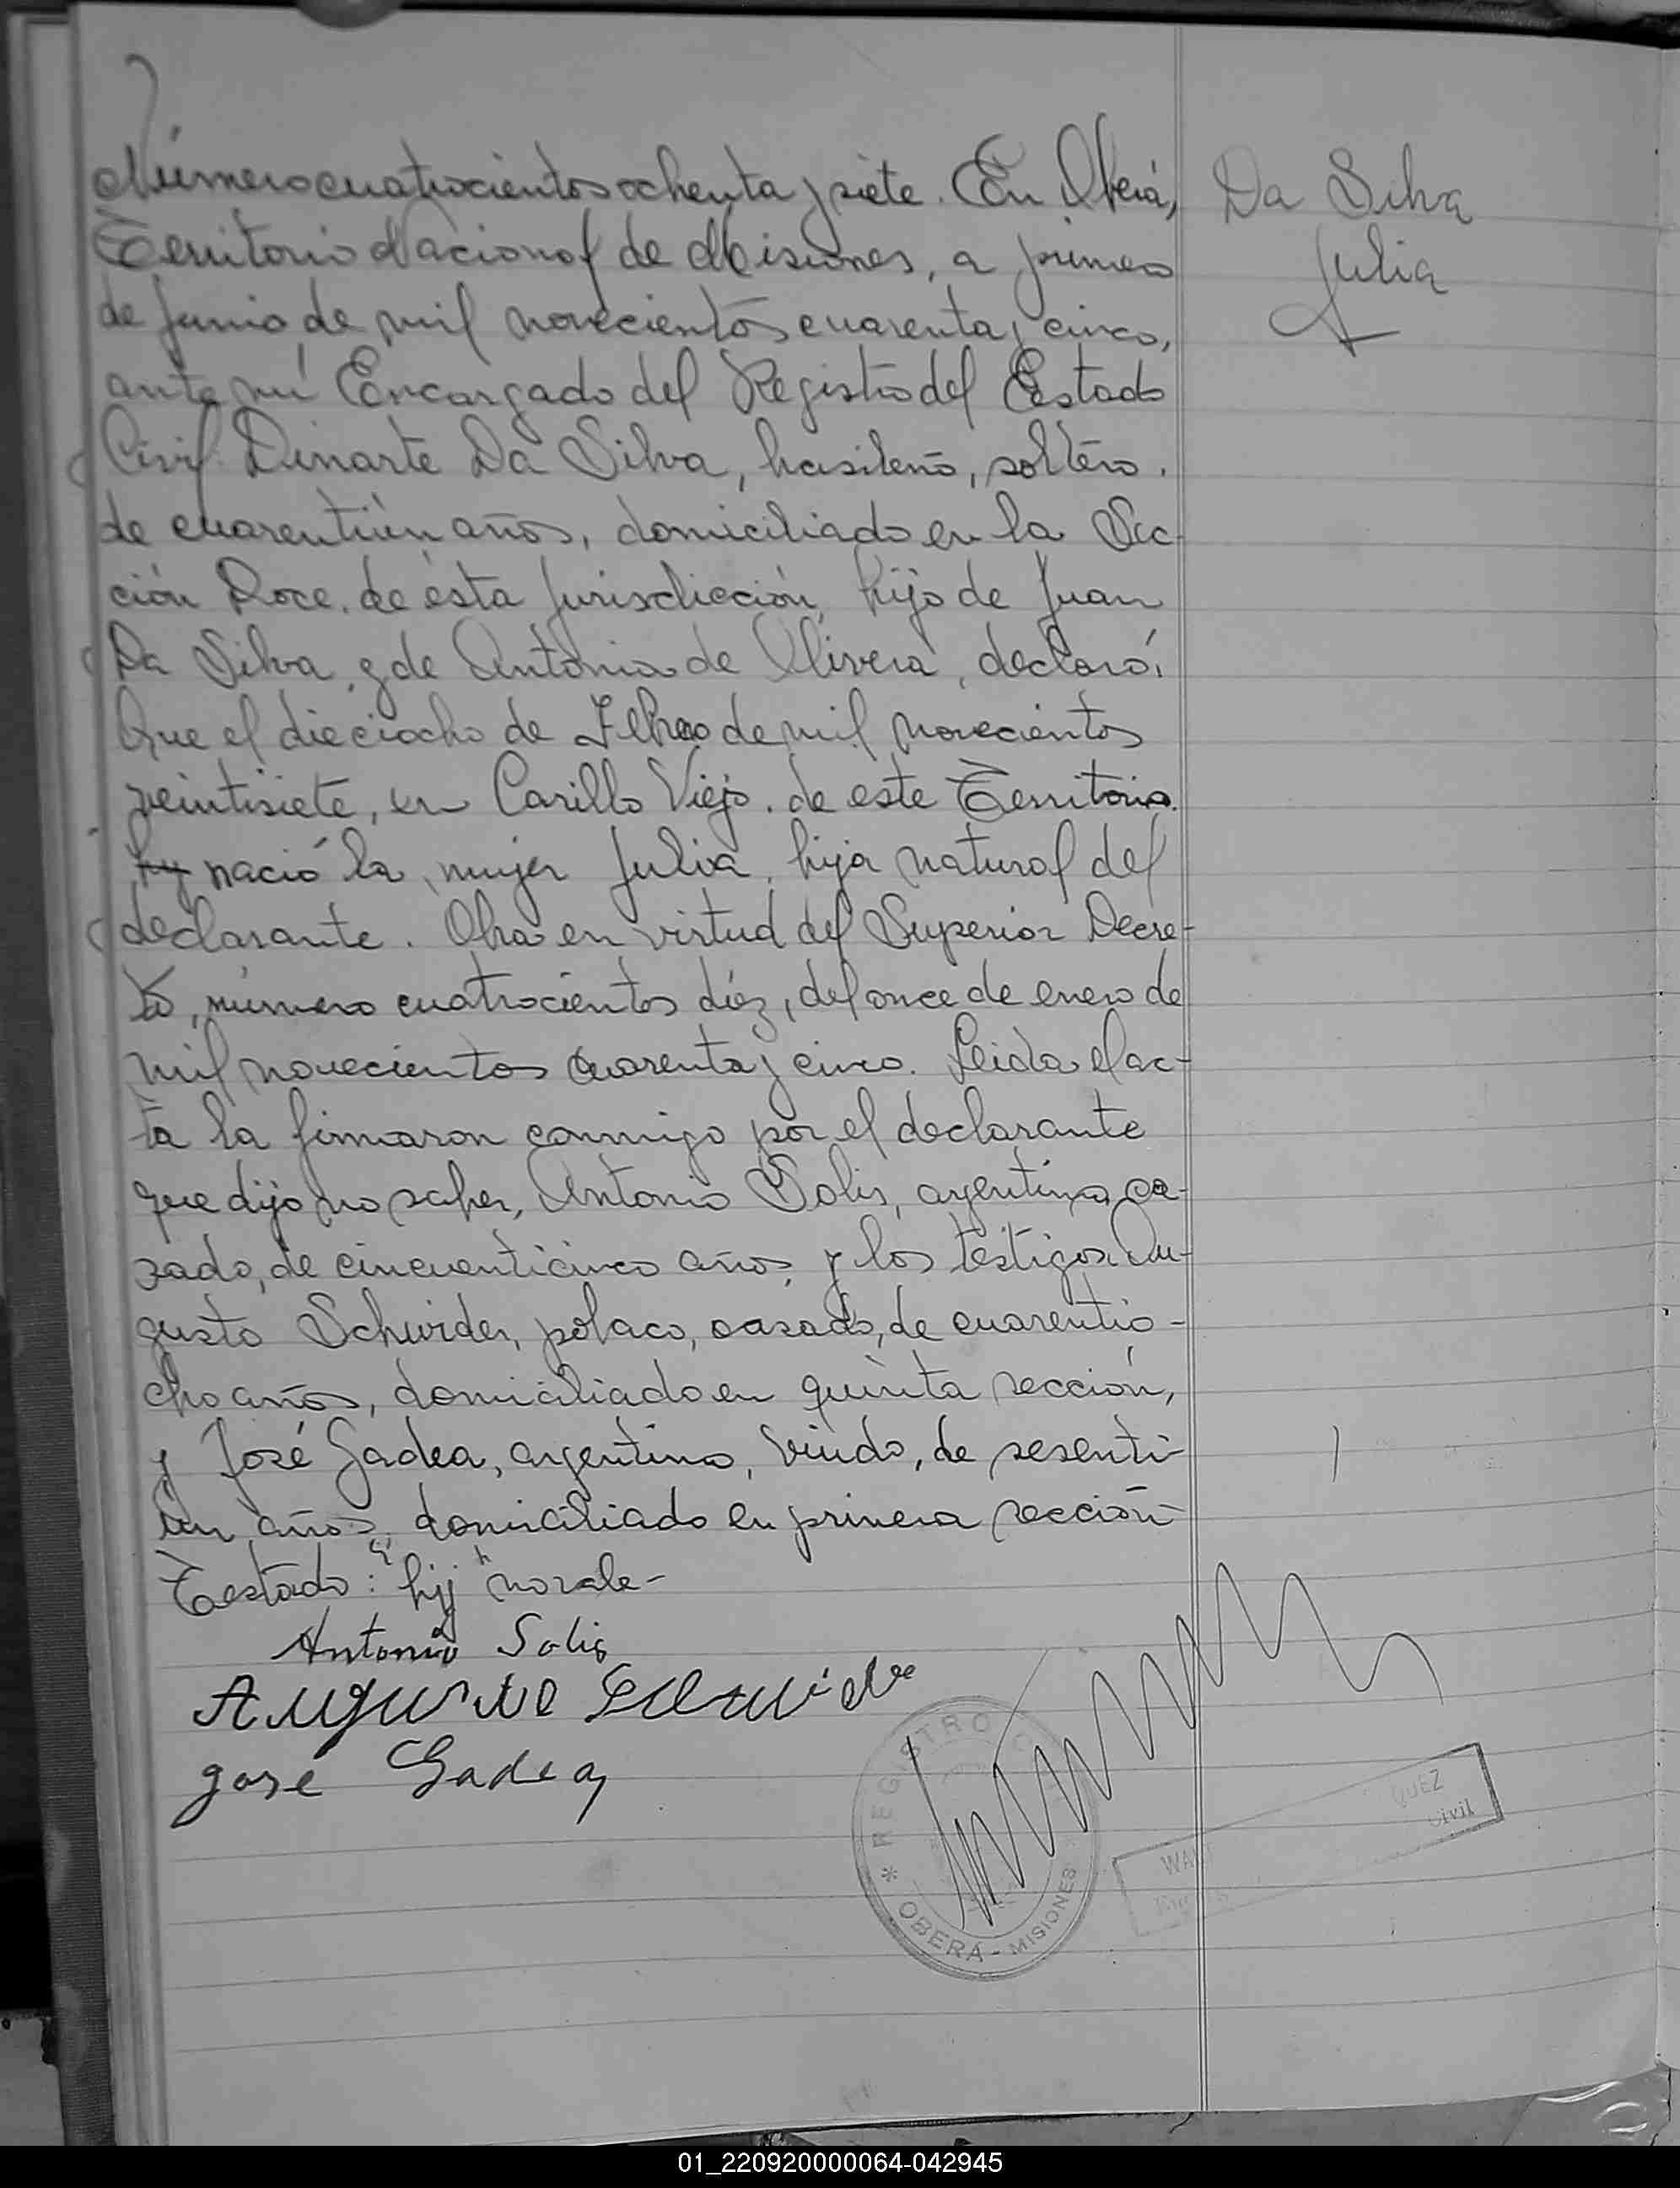 Número cuatrocientos ochenta y siete. En Oberá,
Da Silva
Julia
Territorio Nacional de Misiones, a primero
de junio de mil novecientos cuarenta y cinco,
ante mí Encargado del Registro del Estado
Civil Dinarte Da Silva, brasileño, soltero.
de cuarentiún años, domiciliado en la Sec-
ción Doce, de ésta jurisdicción, hijo de Juan
Da Silva y de Antonia de Olivera, declaró:
Que el dieciocho de Febrero de mil novecientos
veintisiete, en Cerillo Viejo, de este Territorio.
hij nació la mujer Julia, hija natural del
declarante. Obra en virtud del Superior Decre-
to, número cuatrocientos diéz, del once de enero de
mil novecientos cuarenta y cinco. Leida el ac-
ta la firmaron conmigo por el declarante
que dijo no saber, Antonio Solis, argentino, ca-
zado, de cincuenticinco años, y los testigos Au-
gusto Schvider, polaco, casado, de cuarentio-
cho años, domiciliado en quinta sección,
y José Gadea, argentino, viudo, de sesenti-
ún años, domiciliado en primera sección-
Testado: "hij" no vale-
Antonio Solis
José Gadea
REGISTRO
* OBERÁ - MISIONES
QUEZ
Civil
01_220920000064-042945